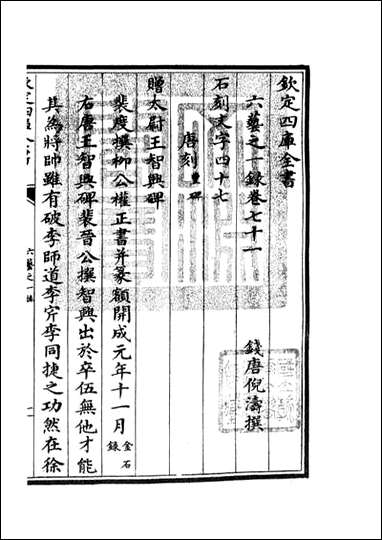 欽定四庫全書
六藝之一録卷七十一
錢唐倪濤撰
石刻文字四十七
唐刻豊碑
贈太尉王智興碑
裴度撰柳公權正書并篆額開成元年十一月金石録
右唐王智興碑裴晉公撰智興出於卒伍無他才能
其為將帥雖有破李師道李㝏李同捷之功然在徐
欽定四庫全書
六藝之一録
一